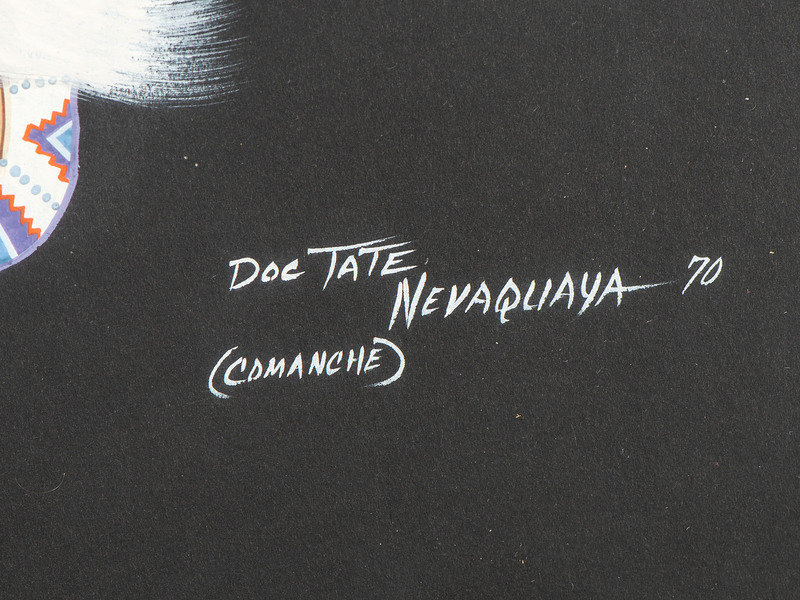 DOC TATE
NEVAQUAYA 70
(COMANCHE)